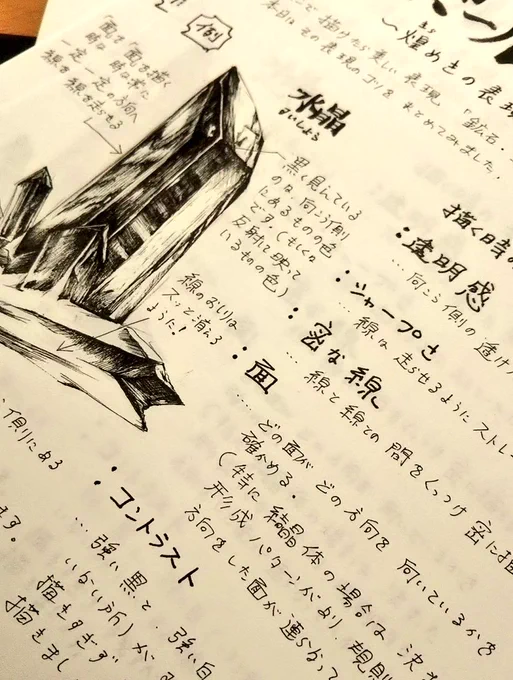 例
〜煌めきの表現
で描ける美しい表現、「鉱石
本日はその表現のコツをまとめてみました。
「面を描く
時は
一定の方向へ
線を走らせる
水晶
すいしょう
黒く見えている
のは、向こう側
にあるものの色
です。(もしくは
反射して映って
いるものの色)
線のおしりは
スッと消える
ように!
描く時の
：透明感
…向こう側の透け
：シャープさ
…線は走らせるようにストレ
：密な線
…線と線との間をくっつけ密に描
：面
…どの面がどの方向を向いているかを
確かめる。
(特に結晶体の場合は決ま
形成パターンがあり、規則
方向をした面が連なって
側にある
ます。
：コントラスト
…強い黒と、強い白
いない所)が
描きすぎず
描きまし